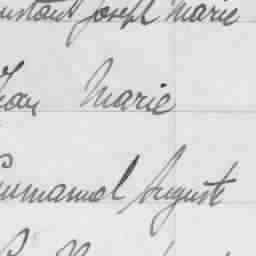 Joseph Marie
Jean Marie
Emmanuel Auguste